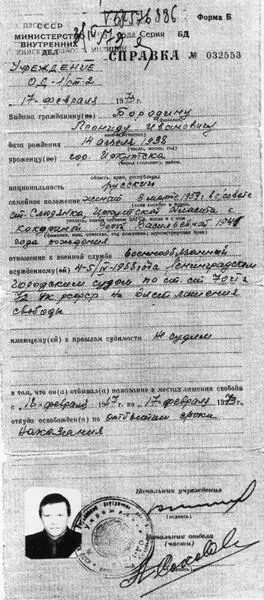 V БД № 576886
Форма Б
СССР
МИНИСТЕРСТВО
ВНУТРЕННИХ
ДЕЛ
года Серия БД
СПРАВКА № 032553
УЧРЕЖДЕНИЕ
ОД-1/ст-2
17 февраля 1973 г.
Выдана гражданину(ке) Бородину
Леониду Ивановичу
дата рождения 14 апреля 1938
(число, месяц, год)
уроженцу(ке) гор. Иркутска
(город, район,
область, край, республика)
национальность русский
семейное положение женат 8 марта 1959 г. в с/совете
ст. Слюдянка, Иркутской области с
Васильевной
года рождения
отношение к военной службе военнообязанный
осужденному 4-5/IV-1968 года Ленинградским
городским судом по ст. ст. 70 ч 1 и
72 УК РСФСР на 6 лет лишения
свободы
имеющему(ей) в прошлом судимости Не судим
в том, что он(а) отбывал(а) наказание в местах лишения свободы
с 18 февраля 1967 г. по 17 февраля 1973 г.
откуда освобожден(а) по отбытии срока
наказания
Начальник учреждения
(подпись)
Начальник отдела
(части)